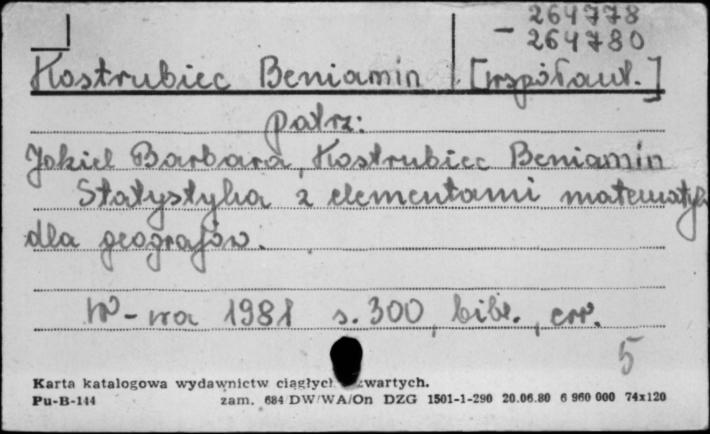 - 264778
264780
Kostrubiec Beniamin [współaut.]
patrz:
Jokiel Barbara, Kostrubiec Beniamin
Statystyka z elementami matematyki
dla geografów.
W-wa 1981 s. 300, bibl., err.
5
Karta katalogowa wydawnictw ciągłych zwartych.
Pu-B-144 zam. 684/DW/WA/On DZG 1501-1-290 20.06.80 6 960 000 74x120